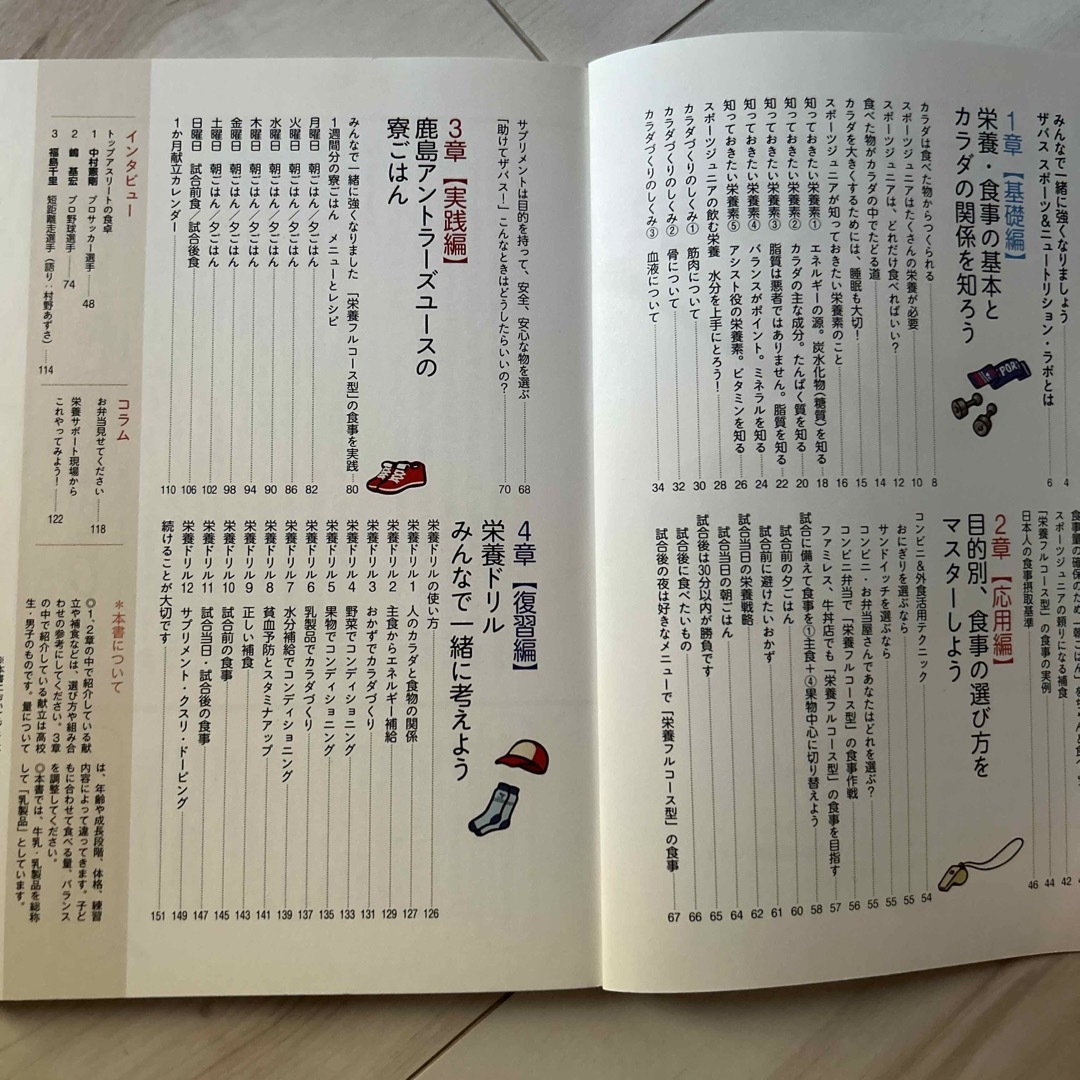 みんなで一緒に強くなりましょう 4
ザバス スポーツ&ニュートリション・ラボとは 6
1章【基礎編】
栄養・食事の基本と
カラダの関係を知ろう
カラダは食べた物からつくられる 8
スポーツジュニアはたくさんの栄養が必要 10
スポーツジュニアは、どれだけ食べればいい? 12
食べた物がカラダの中でたどる道 14
カラダを大きくするためには、睡眠も大切! 15
スポーツジュニアが知っておきたい栄養素のこと 16
知っておきたい栄養素① エネルギーの源。炭水化物(糖質)を知る 18
知っておきたい栄養素② カラダの主な成分。たんぱく質を知る 20
知っておきたい栄養素③ 脂質は悪者ではありません。脂質を知る 22
知っておきたい栄養素④ バランスがポイント。ミネラルを知る 24
知っておきたい栄養素⑤ アシスト役の栄養素。ビタミンを知る 26
スポーツジュニアの飲む栄養 水分を上手にとろう! 28
カラダづくりのしくみ① 筋肉について 30
カラダづくりのしくみ② 骨について 32
カラダづくりのしくみ③ 血液について 34
2章【応用編】
目的別、食事の選び方を
マスターしよう
スポーツジュニアの頼りになる補食 42
「栄養フルコース型」の食事の実例 44
日本人の食事摂取基準 46
コンビニ&外食活用テクニック 54
おにぎりを選ぶなら 55
サンドイッチを選ぶなら 55
コンビニ・お弁当屋さんであなたはどれを選ぶ? 56
コンビニ弁当で「栄養フルコース型」の食事作戦 56
ファミレス、牛丼店でも「栄養フルコース型」の食事を目指す 57
試合に備えて食事を①主食+④果物中心に切り替えよう 58
試合前の夕ごはん 60
試合前に避けたいおかず 61
試合当日の栄養戦略 62
試合当日の朝ごはん 64
試合後は30分以内が勝負です 65
試合後に食べたいもの 66
試合後の夜は好きなメニューで「栄養フルコース型」の食事 67
サプリメントは目的を持って、安全、安心な物を選ぶ 68
「助けてザバス!」こんなときはどうしたらいいの? 70
3章【実践編】
鹿島アントラーズユースの
寮ごはん
みんなで一緒に強くなりました「栄養フルコース型」の食事を実践 80
1週間分の寮ごはん メニューとレシピ
月曜日 朝ごはん/夕ごはん 82
火曜日 朝ごはん/夕ごはん 86
水曜日 朝ごはん/夕ごはん 90
木曜日 朝ごはん/夕ごはん 94
金曜日 朝ごはん/夕ごはん 98
土曜日 朝ごはん/夕ごはん 102
日曜日 試合前食/試合後食 106
1か月献立カレンダー 110
4章【復習編】
栄養ドリル
みんなで一緒に考えよう
栄養ドリルの使い方 126
栄養ドリル1 人のカラダと食物の関係 127
栄養ドリル2 主食からエネルギー補給 129
栄養ドリル3 おかずでカラダづくり 131
栄養ドリル4 野菜でコンディショニング 133
栄養ドリル5 果物でコンディショニング 135
栄養ドリル6 乳製品でカラダづくり 137
栄養ドリル7 水分補給でコンディショニング 139
栄養ドリル8 貧血予防とスタミナアップ 141
栄養ドリル9 正しい補食 143
栄養ドリル10 試合前の食事 145
栄養ドリル11 試合当日・試合後の食事 147
栄養ドリル12 サプリメント・クスリ・ドーピング 149
続けることが大切です 151
インタビュー
トップアスリートの食卓
1 中村憲剛 プロサッカー選手 48
2 嶋 基宏 プロ野球選手 74
3 福島千里 短距離走選手(語り:村野あずさ) 114
コラム
お弁当見せてください 118
栄養サポート現場から
これやってみよう! 122
*本書について
◎1、2章の中で紹介している献
立や補食などは、選び方や組み合
わせの参考にしてください。3章
の中で紹介している献立は高校
生・男子のものです。量について
は、年齢や成長段階、体格、練習
内容によって違ってきます。子ど
もに合わせて食べる量、バランス
を調整してください。
◎本書では、牛乳・乳製品を総称
して「乳製品」としています。